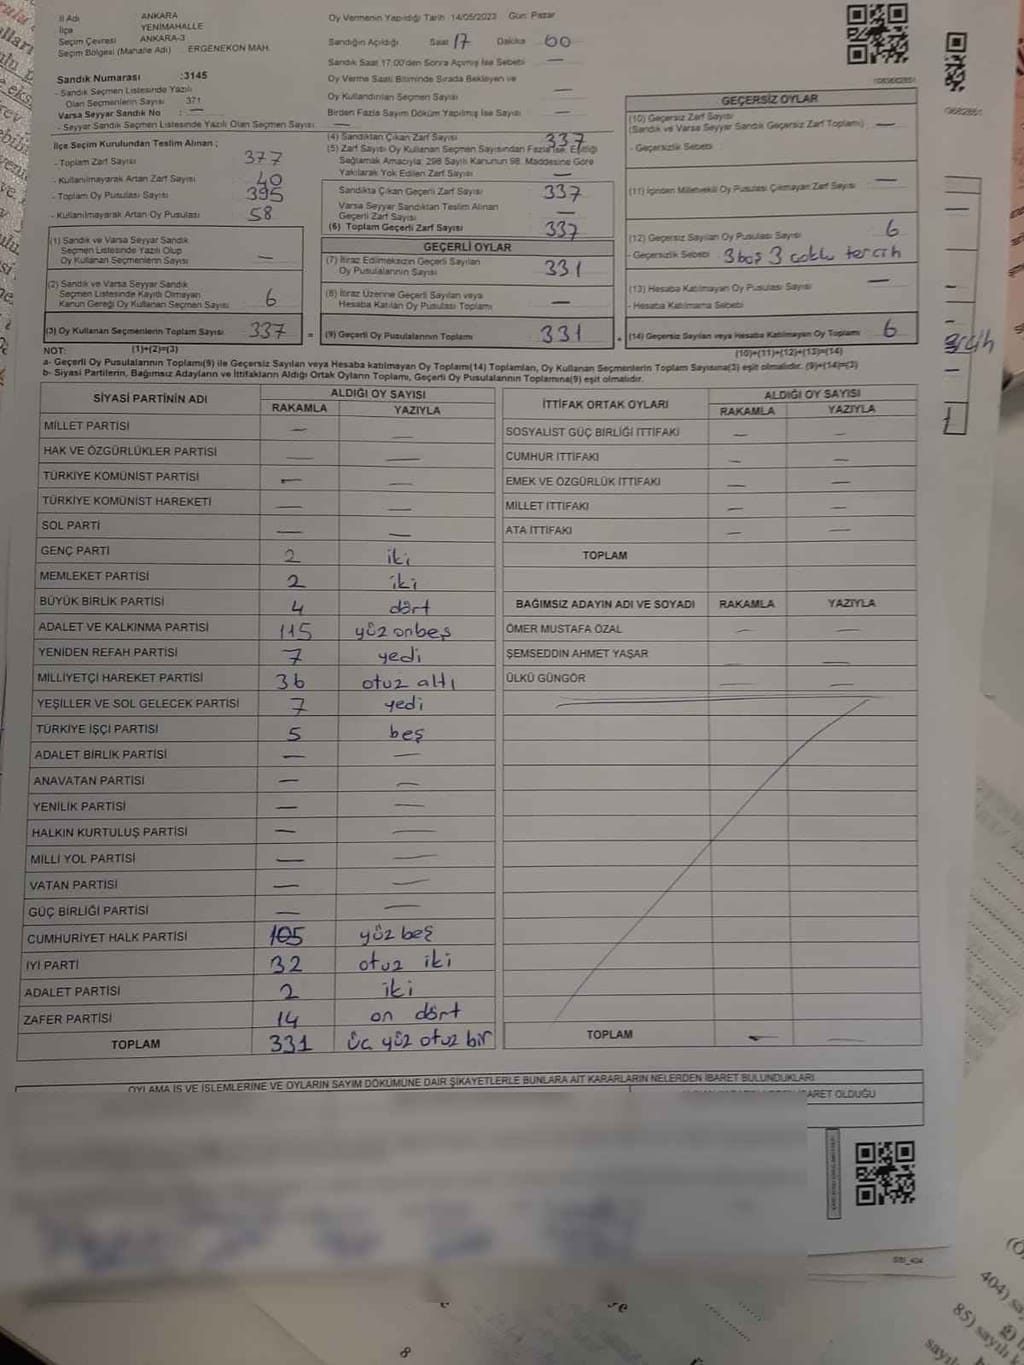 İl Adı ANKARA
İlçe YENİMAHALLE
Seçim Çevresi ANKARA-3
Seçim Bölgesi (Mahalle Adı) ERGENEKON MAH.
Sandık Numarası :3145
- Sandık Seçmen Listesinde Yazılı
Olan Seçmenlerin Sayısı 371
Varsa Seyyar Sandık No : —
- Seyyar Sandık Seçmen Listesinde Yazılı Olan Seçmen Sayısı : —
İlçe Seçim Kurulundan Teslim Alınan ;
- Toplam Zarf Sayısı 377
- Kullanılmayarak Artan Zarf Sayısı 40
- Toplam Oy Pusulası Sayısı 395
- Kullanılmayarak Artan Oy Pusulası 58
(1) Sandık ve Varsa Seyyar Sandık
Seçmen Listesinde Yazılı Olup
Oy Kullanan Seçmenlerin Sayısı —
(2) Sandık ve Varsa Seyyar Sandık
Seçmen Listesinde Kayıtlı Olmayan
Kanun Gereği Oy Kullanan Seçmen Sayısı 6
(3) Oy Kullanan Seçmenlerin Toplam Sayısı 337 =
Oy Vermenin Yapıldığı Tarih :14/05/2023 Gün: Pazar
Sandığın Açıldığı Saat 17 Dakika 00
Sandık Saat 17:00'den Sonra Açılmış İse Sebebi —
Oy Verme Saati Bitiminde Sırada Bekleyen ve
Oy Kullandırılan Seçmen Sayısı —
Birden Fazla Sayım Döküm Yapılmış İse Sayısı —
(4) Sandıktan Çıkan Zarf Sayısı 337
(5) Zarf Sayısı Oy Kullanan Seçmen Sayısından Fazla İse, Eşitliği
Sağlamak Amacıyla; 298 Sayılı Kanunun 98. Maddesine Göre
Yakılarak Yok Edilen Zarf Sayısı —
Sandıkta Çıkan Geçerli Zarf Sayısı 337
Varsa Seyyar Sandıktan Teslim Alınan
Geçerli Zarf Sayısı —
(6) Toplam Geçerli Zarf Sayısı 337
GEÇERLİ OYLAR
(7) İtiraz Edilmeksizin Geçerli Sayılan
Oy Pusulalarının Sayısı 331
(8) İtiraz Üzerine Geçerli Sayılan veya
Hesaba Katılan Oy Pusulası Toplamı —
(9) Geçerli Oy Pusulalarının Toplamı 331
1089682851
GEÇERSİZ OYLAR
(10) Geçersiz Zarf Sayısı
(Sandık ve Varsa Seyyar Sandık Geçersiz Zarf Toplamı) —
- Geçersizlik Sebebi
(11) İçinden Milletvekili Oy Pusulası Çıkmayan Zarf Sayısı —
(12) Geçersiz Sayılan Oy Pusulası Sayısı 6
- Geçersizlik Sebebi 3 boş 3 çoklu tercih
(13) Hesaba Katılmayan Oy Pusulası Sayısı —
- Hesaba Katılmama Sebebi
(14) Geçersiz Sayılan veya Hesaba Katılmayan Oy Toplamı 6
NOT: (1)+(2)=(3) (10)+(11)+(12)+(13)=(14)
a- Geçerli Oy Pusulalarının Toplamı(9) ile Geçersiz Sayılan veya Hesaba katılmayan Oy Toplamı(14) Toplamları, Oy Kullanan Seçmenlerin Toplam Sayısına(3) eşit olmalıdır. (9)+(14)=(3)
b- Siyasi Partilerin, Bağımsız Adayların ve İttifakların Aldığı Ortak Oyların Toplamı, Geçerli Oy Pusulalarının Toplamına(9) eşit olmalıdır.
SİYASİ PARTİNİN ADI ALDIĞI OY SAYISI
RAKAMLA YAZIYLA
MİLLET PARTİSİ — —
HAK VE ÖZGÜRLÜKLER PARTİSİ — —
TÜRKİYE KOMÜNİST PARTİSİ — —
TÜRKİYE KOMÜNİST HAREKETİ — —
SOL PARTİ — —
GENÇ PARTİ 2 iki
MEMLEKET PARTİSİ 2 iki
BÜYÜK BİRLİK PARTİSİ 4 dört
ADALET VE KALKINMA PARTİSİ 115 yüz onbeş
YENİDEN REFAH PARTİSİ 7 yedi
MİLLİYETÇİ HAREKET PARTİSİ 36 otuz altı
YEŞİLLER VE SOL GELECEK PARTİSİ 7 yedi
TÜRKİYE İŞÇİ PARTİSİ 5 beş
ADALET BİRLİK PARTİSİ — —
ANAVATAN PARTİSİ — —
YENİLİK PARTİSİ — —
HALKIN KURTULUŞ PARTİSİ — —
MİLLİ YOL PARTİSİ — —
VATAN PARTİSİ — —
GÜÇ BİRLİĞİ PARTİSİ — —
CUMHURİYET HALK PARTİSİ 105 yüz beş
İYİ PARTİ 32 otuz iki
ADALET PARTİSİ 2 iki
ZAFER PARTİSİ 14 on dört
TOPLAM 331 üç yüz otuz bir
İTTİFAK ORTAK OYLARI ALDIĞI OY SAYISI
RAKAMLA YAZIYLA
SOSYALİST GÜÇ BİRLİĞİ İTTİFAKI — —
CUMHUR İTTİFAKI — —
EMEK VE ÖZGÜRLÜK İTTİFAKI — —
MİLLET İTTİFAKI — —
ATA İTTİFAKI — —
TOPLAM
BAĞIMSIZ ADAYIN ADI VE SOYADI RAKAMLA YAZIYLA
ÖMER MUSTAFA ÖZAL — —
ŞEMSEDDİN AHMET YAŞAR — —
ÜLKÜ GÜNGÖR — —
TOPLAM — —
OYLAMA İŞ VE İŞLEMLERİNE VE OYLARIN SAYIM DÖKÜMÜNE DAİR ŞİKAYETLERLE BUNLARA AİT KARARLARIN NELERDEN İBARET BULUNDUKLARI
BARET OLDUĞU
8
404) sa
85) sayılı